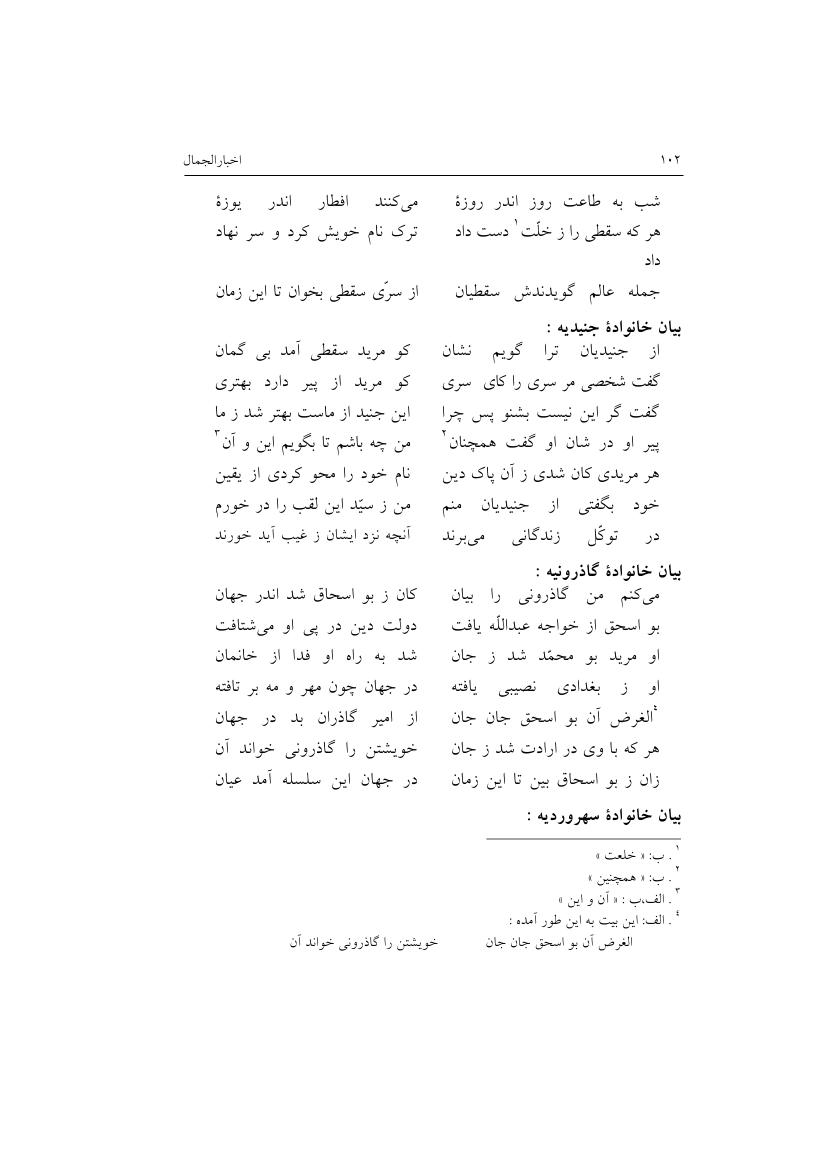 ۱۰۲ اخبارالجمال
شب به طاعت روز اندر روزۀ می‌کنند افطار اندر یوزۀ
هر که سقطی را ز خلّت۱ دست داد ترک نام خویش کرد و سر نهاد
داد
جمله عالم گویدندش سقطیان از سرّی سقطی بخوان تا این زمان
بیان خانوادۀ جنیدیه :
از جنیدیان ترا گویم نشان کو مرید سقطی آمد بی گمان
گفت شخصی مر سری را کای سری کو مرید از پیر دارد بهتری
گفت گر این نیست بشنو پس چرا این جنید از ماست بهتر شد ز ما
پیر او در شان او گفت همچنان۲ من چه باشم تا بگویم این و آن۳
هر مریدی کان شدی ز آن پاک دین نام خود را محو کردی از یقین
خود بگفتی از جنیدیان منم من ز سیّد این لقب را در خورم
در توکّل زندگانی می‌برند آنچه نزد ایشان ز غیب آید خورند
بیان خانوادۀ گاذرونیه :
می‌کنم من گاذرونی را بیان کان ز بو اسحاق شد اندر جهان
بو اسحق از خواجه عبداللّه یافت دولت دین در پی او می‌شتافت
او مرید بو محمّد شد ز جان شد به راه او فدا از خانمان
او ز بغدادی نصیبی یافته در جهان چون مهر و مه بر تافته
۴الغرض آن بو اسحق جان جان از امیر گاذران بد در جهان
هر که با وی در ارادت شد ز جان خویشتن را گاذرونی خواند آن
زان ز بو اسحاق بین تا این زمان در جهان این سلسله آمد عیان
بیان خانوادۀ سهروردیه :
۱ . ب: « خلعت »
۲ . ب: « همچنین »
۳ . الف،ب : « آن و این »
۴ . الف: این بیت به این طور آمده :
الغرض آن بو اسحق جان جان خویشتن را گاذرونی خواند آن